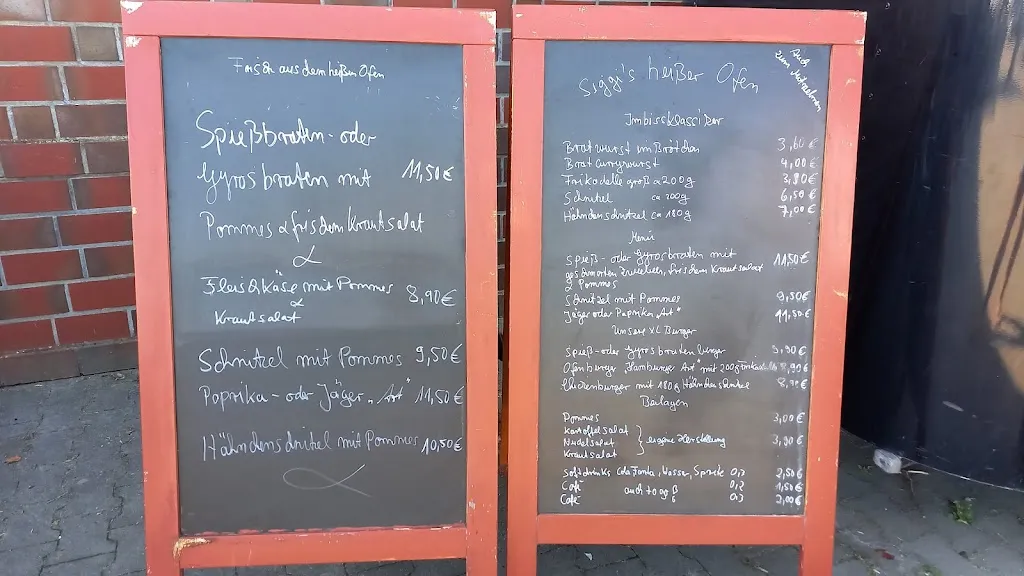 Frisch aus dem heißen Ofen
Spießbraten- oder
Gyrosbraten mit 11,50€
Pommes & frischem Krautsalat
&
Fleischkäse mit Pommes 8,90€
&
Krautsalat
Schnitzel mit Pommes 9,50€
Paprika- oder Jäger "Art" 11,50€
Hähnchenschnitzel mit Pommes 10,50€
Siggi's heißer Ofen
Auch zum Mitnehmen
Imbissklassiker
Bratwurst im Brötchen 3,60€
Bratcurrywurst 4,00€
Frikadelle groß ca 200g 3,80€
Schnitzel ca 200g 6,50€
Hähnchenschnitzel ca 180g 7,00€
Menü
Spieß- oder Gyrosbraten mit 11,50€
geschmorten Zwiebeln, frischem Krautsalat
& Pommes
Schnitzel mit Pommes 9,50€
Jäger oder Paprika "Art" 11,50€
Unsere XL Burger
Spieß- oder Gyrosbraten burger 9,90€
Hamburger Art mit 200g 8,90€
mit 180g Hähnchenschnitzel 8,90€
Beilagen
Pommes 3,00€
Kartoffelsalat
Nudelsalat } eigene Herstellung 3,90€
Krautsalat
Softdrinks Cola, Fanta, Wasser, Sprite 0,2 2,50€
Café 0,2 1,50€
auch to go
Café 0,3 2,00€